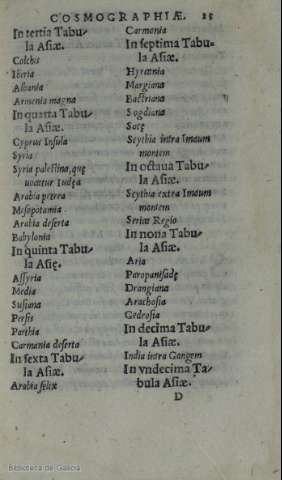 COSMOGRAPHIÆ. 25
In tertia Tabu⸗
la Asiæ.
Colchis
Iberia
Albania
Armenia magna
In quarta Tabu⸗
la Asiæ.
Cyprus Insula
Syria
Syria palestina, quę
uocatur Iudęa
Arabia petrea
Mesopotamia
Arabia deserta
Babylonia
In quinta Tabu⸗
la Asię.
Assyria
Media
Susiana
Persis
Parthia
Carmania deserta
In sexta Tabu⸗
la Asiæ.
Arabia felix
Carmonia
In septima Tabu⸗
la Asiæ.
Hyrcania
Margiana
Bactriana
Sogdiana
Sacę
Scythia intra Imaum
montem
In octaua Tabu⸗
la Asiæ.
Scythia extra Imaum
montem
Serica Regio
In nona Tabu⸗
la Asiæ.
Aria
Paropanisadę
Drangiana
Arachosia
Gedrosia
In decima Tabu⸗
la Asiæ.
India intra Gangem
In vndecima Ta⸗
bula Asiæ.
D
Biblioteca de Galicia